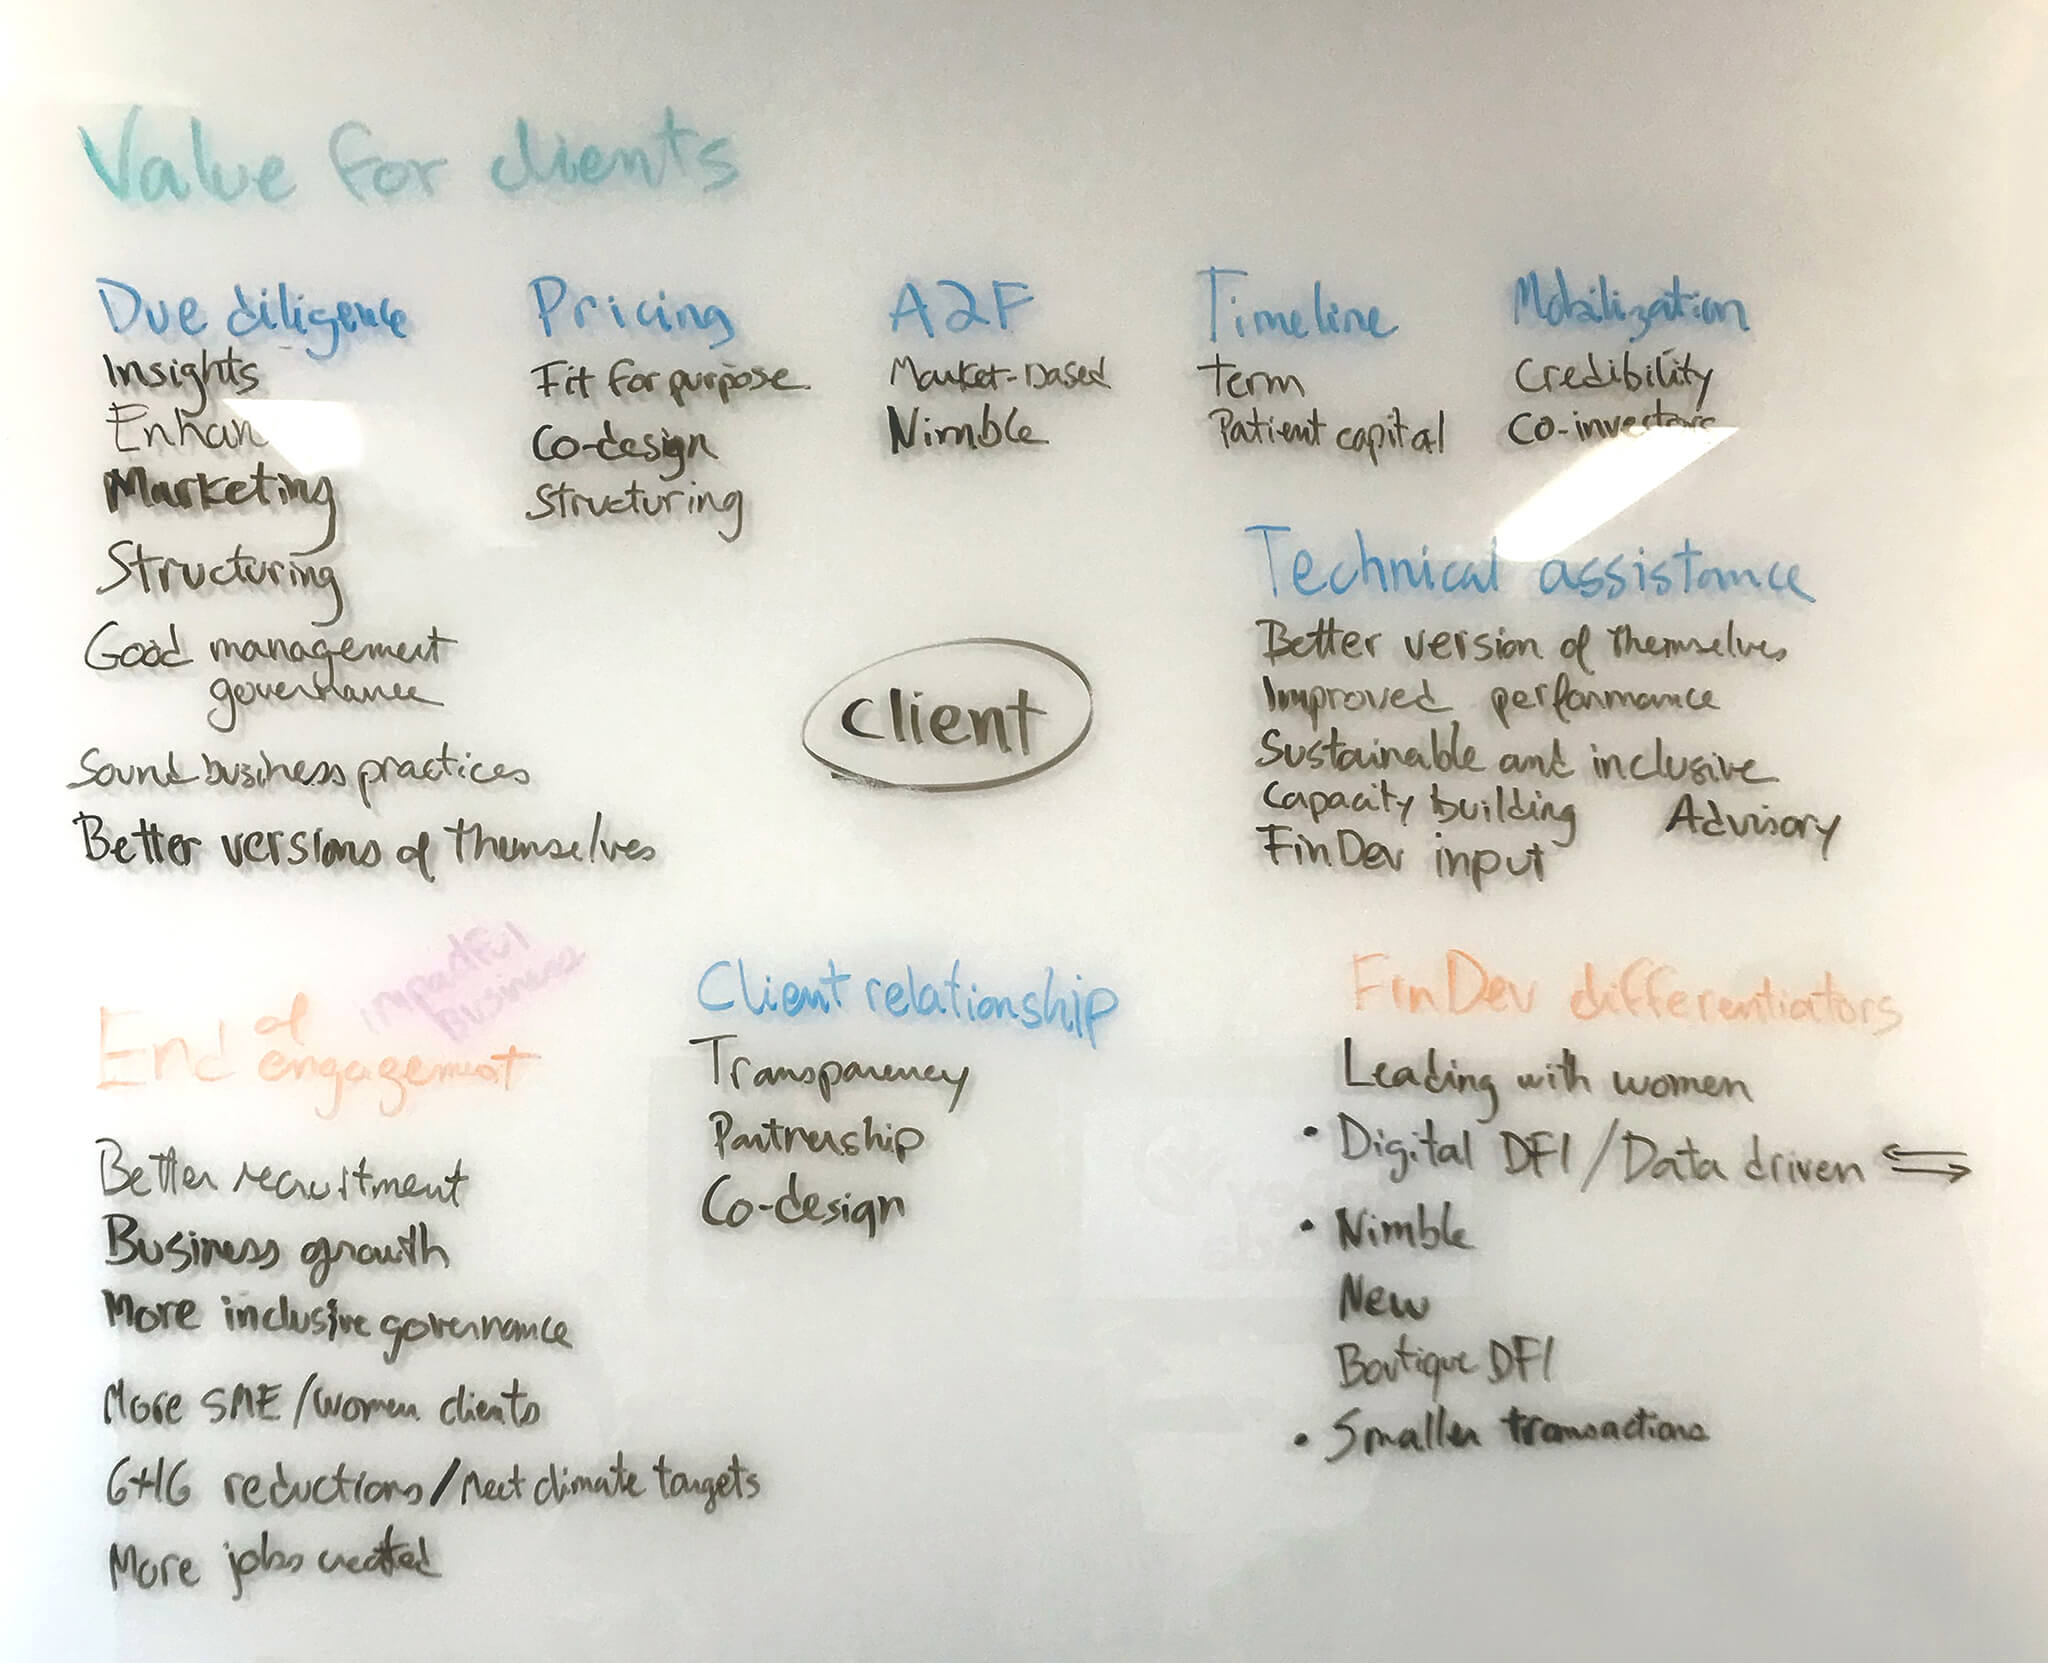 Value for clients
Due diligence
Insights
Enhan
Marketing
Structuring
Good management
governance
Sound business practices
Better versions of themselves
Pricing
Fit for purpose
Co-design
Structuring
A2F
Market-based
Nimble
Timeline
Term
Patient capital
Mobilization
Credibility
Co-investors
client
Technical assistance
Better version of themselves
Improved performance
Sustainable and inclusive
Capacity building
Advisory
FinDev input
impactful
business
End of
engagement
Better recruitment
Business growth
More inclusive governance
More SME/women clients
GHG reductions/Meet climate targets
More jobs created
Client relationship
Transparency
Partnership
Co-design
FinDev differentiators
Leading with women
• Digital DFI/Data driven
• Nimble
New
Boutique DFI
• Smaller transactions